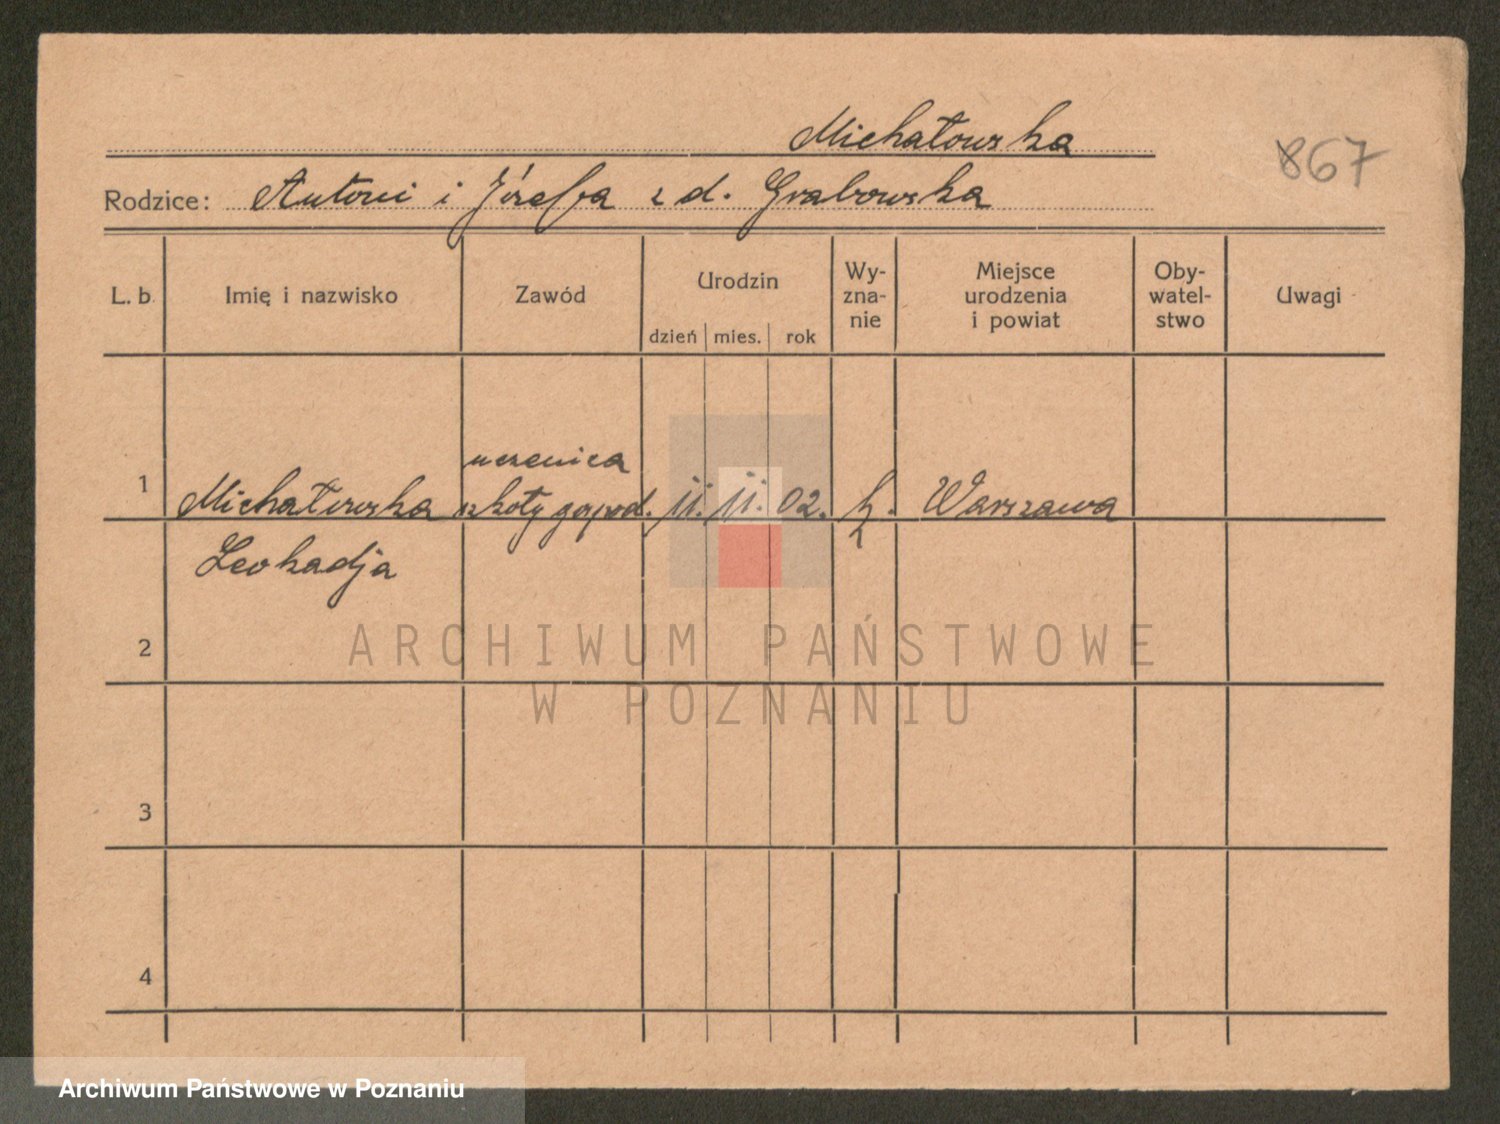 Michałowska
867
Rodzice: Antoni i Józefa z d. Grabowska
L. b. Imię i nazwisko Zawód Urodzin dzień mies. rok Wy-zna-nie Miejsce urodzenia i powiat Oby-watel-stwo Uwagi
uczenica
1 Michałowska szkoły gospod. 11. 11. 02. k. Warszawa
Leokadja
2
ARCHIWUM PAŃSTWOWE
W POZNANIU
3
4
Archiwum Państwowe w Poznaniu